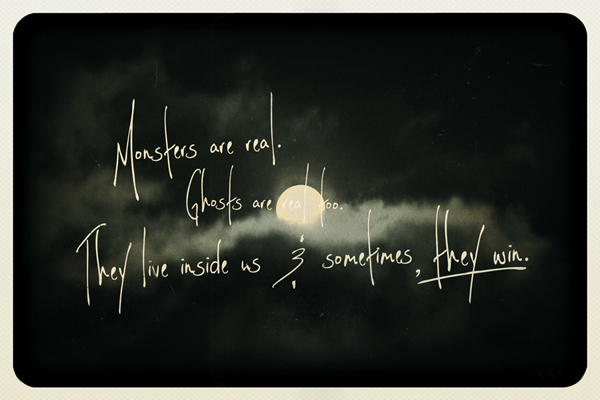 Monsters are real.
Ghosts are real too.
They live inside us & sometimes, they win.